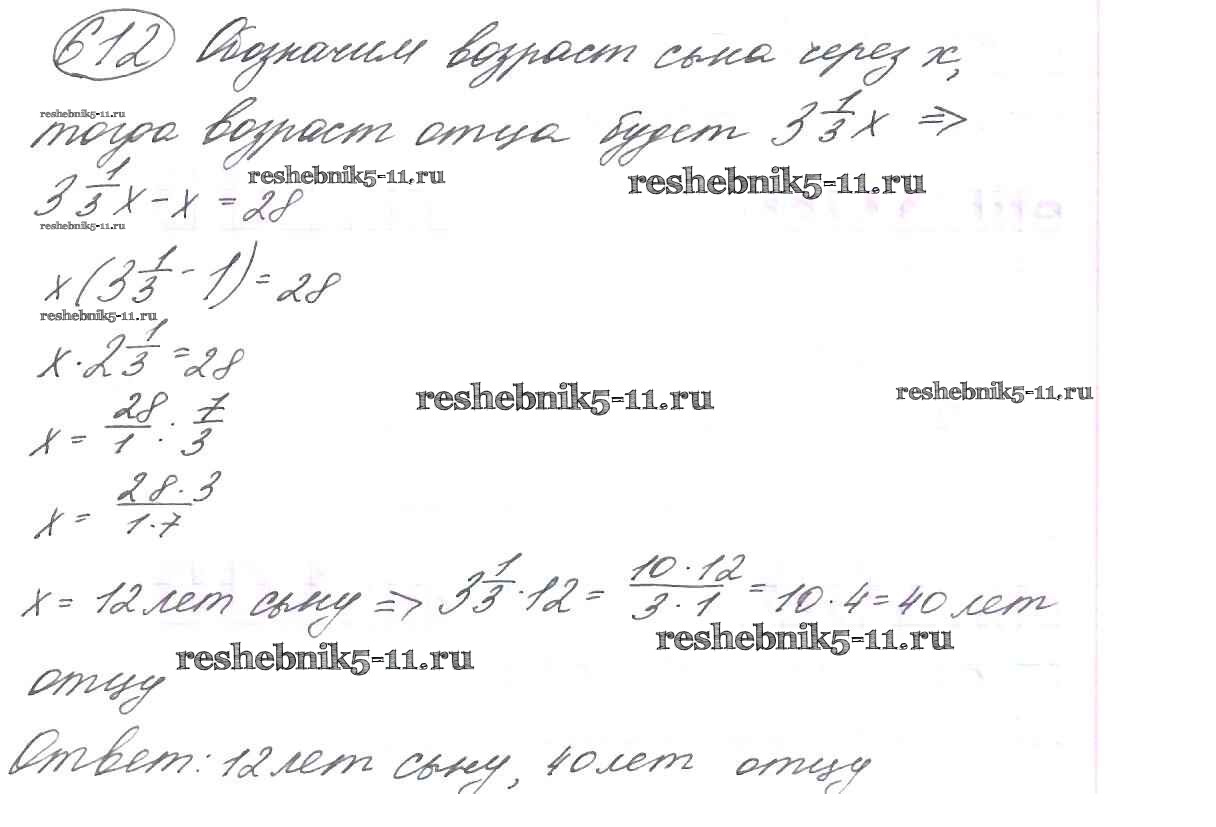 612 Обозначим возраст сына через x,
reshebnik5-11.ru
тогда возраст отца будет 3 1/3 x ⇒
reshebnik5-11.ru
reshebnik5-11.ru
3 1/3 x - x = 28
reshebnik5-11.ru
x (3 1/3 - 1) = 28
reshebnik5-11.ru
x · 2 1/3 = 28
reshebnik5-11.ru
reshebnik5-11.ru
x = 28/1 : 7/3
x = 28·3/1·7
x = 12 лет сыну ⇒ 3 1/3 · 12 = 10·12/3·1 = 10·4 = 40 лет
reshebnik5-11.ru
reshebnik5-11.ru
отцу
Ответ: 12 лет сыну, 40 лет отцу